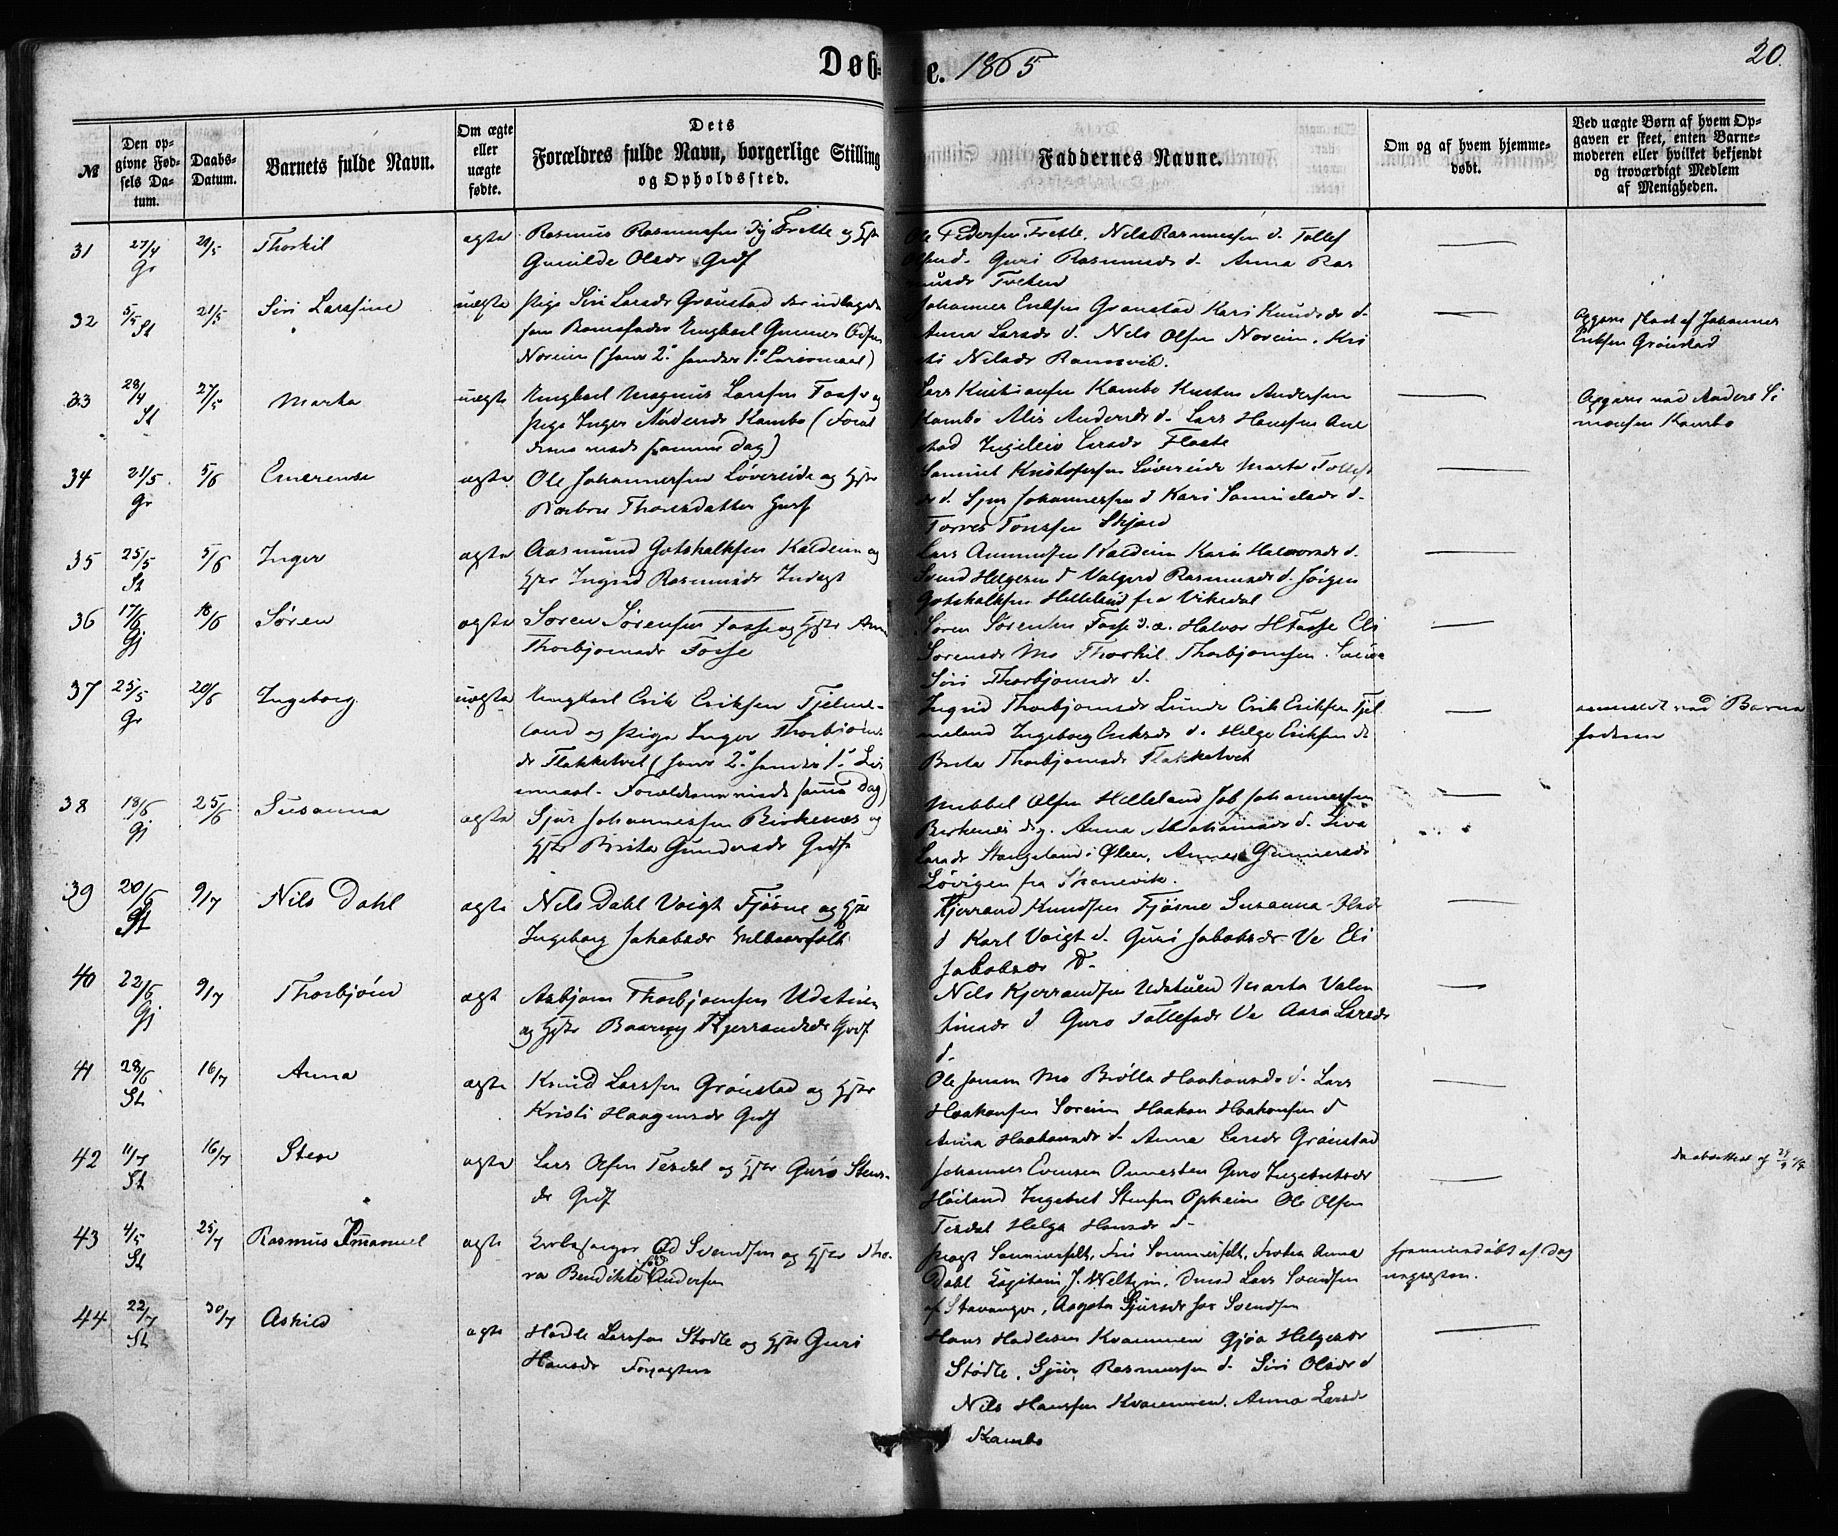 Døb-
e. 1865
20.
№
Den op-
givne Fød-
sels Da-
tum.
Daabs-
Datum.
Barnets fulde Navn.
Om ægte
eller
uægte
fødte.
Dets
Forældres fulde Navn, borgerlige Stilling
og Opholdssted.
Faddernes Navne.
Om og af hvem hjemme-
døbt.
Ved uægte Børn af hvem Op-
gaven er skeet, enten Barne-
moderen eller hvilket bekjendt
og troværdigt Medlem
af Menigheden.
31 27/4 Gr 21/5 Thorkil ægte Rasmus Rasmussen Frette og Hstr
Gunilde Olsdr Grdf
Ole Pedersen Frette, Nils Rasmussen d. Tollef
Guri Rasmusdr d. Anna Ras
musdr Tveten
32 5/5 St 21/5 Siri Larsine uægte Pige Siri Larsdr Grønstad der udlagde
som Barnefader Ungkarl Gunner
Noreim (hans 2 hendes 1 Leiermaal)
Johannes Eriksen Grønstad Kari Knudsdr d.
Anna Larsdr d. Nils Olsen Noreim, Kri
sti Nilsdr Ramsvik.
Opgave skeet af Johannes
Eriksen Grønstad
33 28/4 St 27/5 Marta uægte Ungkarl Magnus Larsen Fosse og
Pige Inger Andersdr Kambo (Foræl
drene viede samme Dag)
Lars Kristiansen Kambo Kristen Andersen
Kambo Alis Andersdr d. Lars Hansen Aae
stad Ingeleiv Larsdr Flaate
Opgave ved Anders Si
monsen Kambo
34 21/5 Gr 5/6 Emerense ægte Ole Johannessen Løvereide og Hstr
Barbro Thoresdatter Grdf
Samuel Kristofersen Løvereide Marta Tollefs
dr d. Sjur Johannessen d Kari Samuelsdr d.
Torres Tonssen Skjold
35 25/5 St 5/6 Inger ægte Aasmund Gotskalksen Kaldeim og
Hstr Ingrid Rasmusdr Indsgt
Lars Amundsen Kaldeim Kari Halvorsdr d.
Svend Helgesen d Valgerd Rasmusdr d. Jørgen
Gotskalksen Helleland fra Vikedal
36 17/6 Gj 18/6 Søren ægte Søren Sørensen Fosse og Hstr Anna
Thorbjørnsdr Fosse
Søren Sørensen Fosse d.æ. Halvor H Fosse Eli
Sørensdr Mo Thorkil Thorbjørnsen
Siri Thorbjørnsdr d.
37 25/5 Gr 20/6 Ingeborg uægte Ungkarl Erik Eriksen Fjelme-
land og Pige Inger Thorbjørns
dr Flakketvet (hans 2 hendes 1 Lei
ermaal. Forældrene viede samme Dag)
Ingrid Thorbjørnsdr Lunde Erik Eriksen Fjel
meland Ingeborg Eriksdr d. Helge Eriksen d
Brita Thorbjørnsdr Flakketvet
anmeldt ved Barne
faderen
38 18/6 Gj 25/6 Susanna ægte Sjur Johannessen Birkenes og
Hstr Brita Gundersdr Grdf
Mikkel Olsen Helleland Job Johannessen
Birkenes Anna Abrahamsdr d. Siva
Larsdr Stangeland i Ølen, Anne Gunnersdr
Løvigen fra Skonevik.
39 20/6 St 9/7 Nils Dahl ægte Nils Dahl Voigt Fjøsne og Hstr
Ingeborg Jakobsdr Selbaarfolk
Kjerrand Knudsen Fjøsne Susanna
d Karl Voigt d. Guri Jakobsdr Ve Eli
Jakobsdr d.
40 22/6 Gj 9/7 Thorbjørn ægt Asbjørn Thorbjørnsen Udstuen
og Hstr Baarny Kjerrandsdr Grdf
Nils Kjerrandsen Udstuen Marta Valen
tinsdr d Guro Tollefsdr Ve Aasa Larsdr
d.
41 28/6 St 16/7 Anna ægte Knud Larssen Grønstad og Hstr
Kristi Haagensdr Grdf
Ole Jansen Mo Brølla Haakonsdr d. Lars
Haakonsen Soreim Haakon Haakonsen d
Anna Haakonsdr d. Anna Larsdr Grønstad
42 11/7 St 16/7 Sten ægte Lars Olsen Tesdal og Hstr Guro Stens-
dr Grdf
Johannes Evensen Guro Ingebretsdr
Høiland Ingebret Stensen Opheim Ole Olsen
Tesdal Helga Hansdr d.
43 4/5 St 25/7 Rasmus Immanuel ægte Kirkesanger Od Svendsen og Hstr Tho
ra Bendikte f. Andersen
Provst Sommerfelt, Fru Sommerfelt, Frøken Anna
Dahl Kapitain J. Weltzin, Lars Svendsen
af Stavanger, Aagata Sjursdr for Svendsen
hjemmedøbt af Sog
nepræsten.
44 22/7 St 30/7 Askild ægte Hadle Larsson Stødle og Hstr Guri
Hansdr Forpagtere
Hans Hadlesen Kvammen Gjøa Helgesdr
Stødle, Sjur Rasmussen d. Siri Olsdr d
Nils Hanssen Kvammen. Anna Larsdr
Kambo